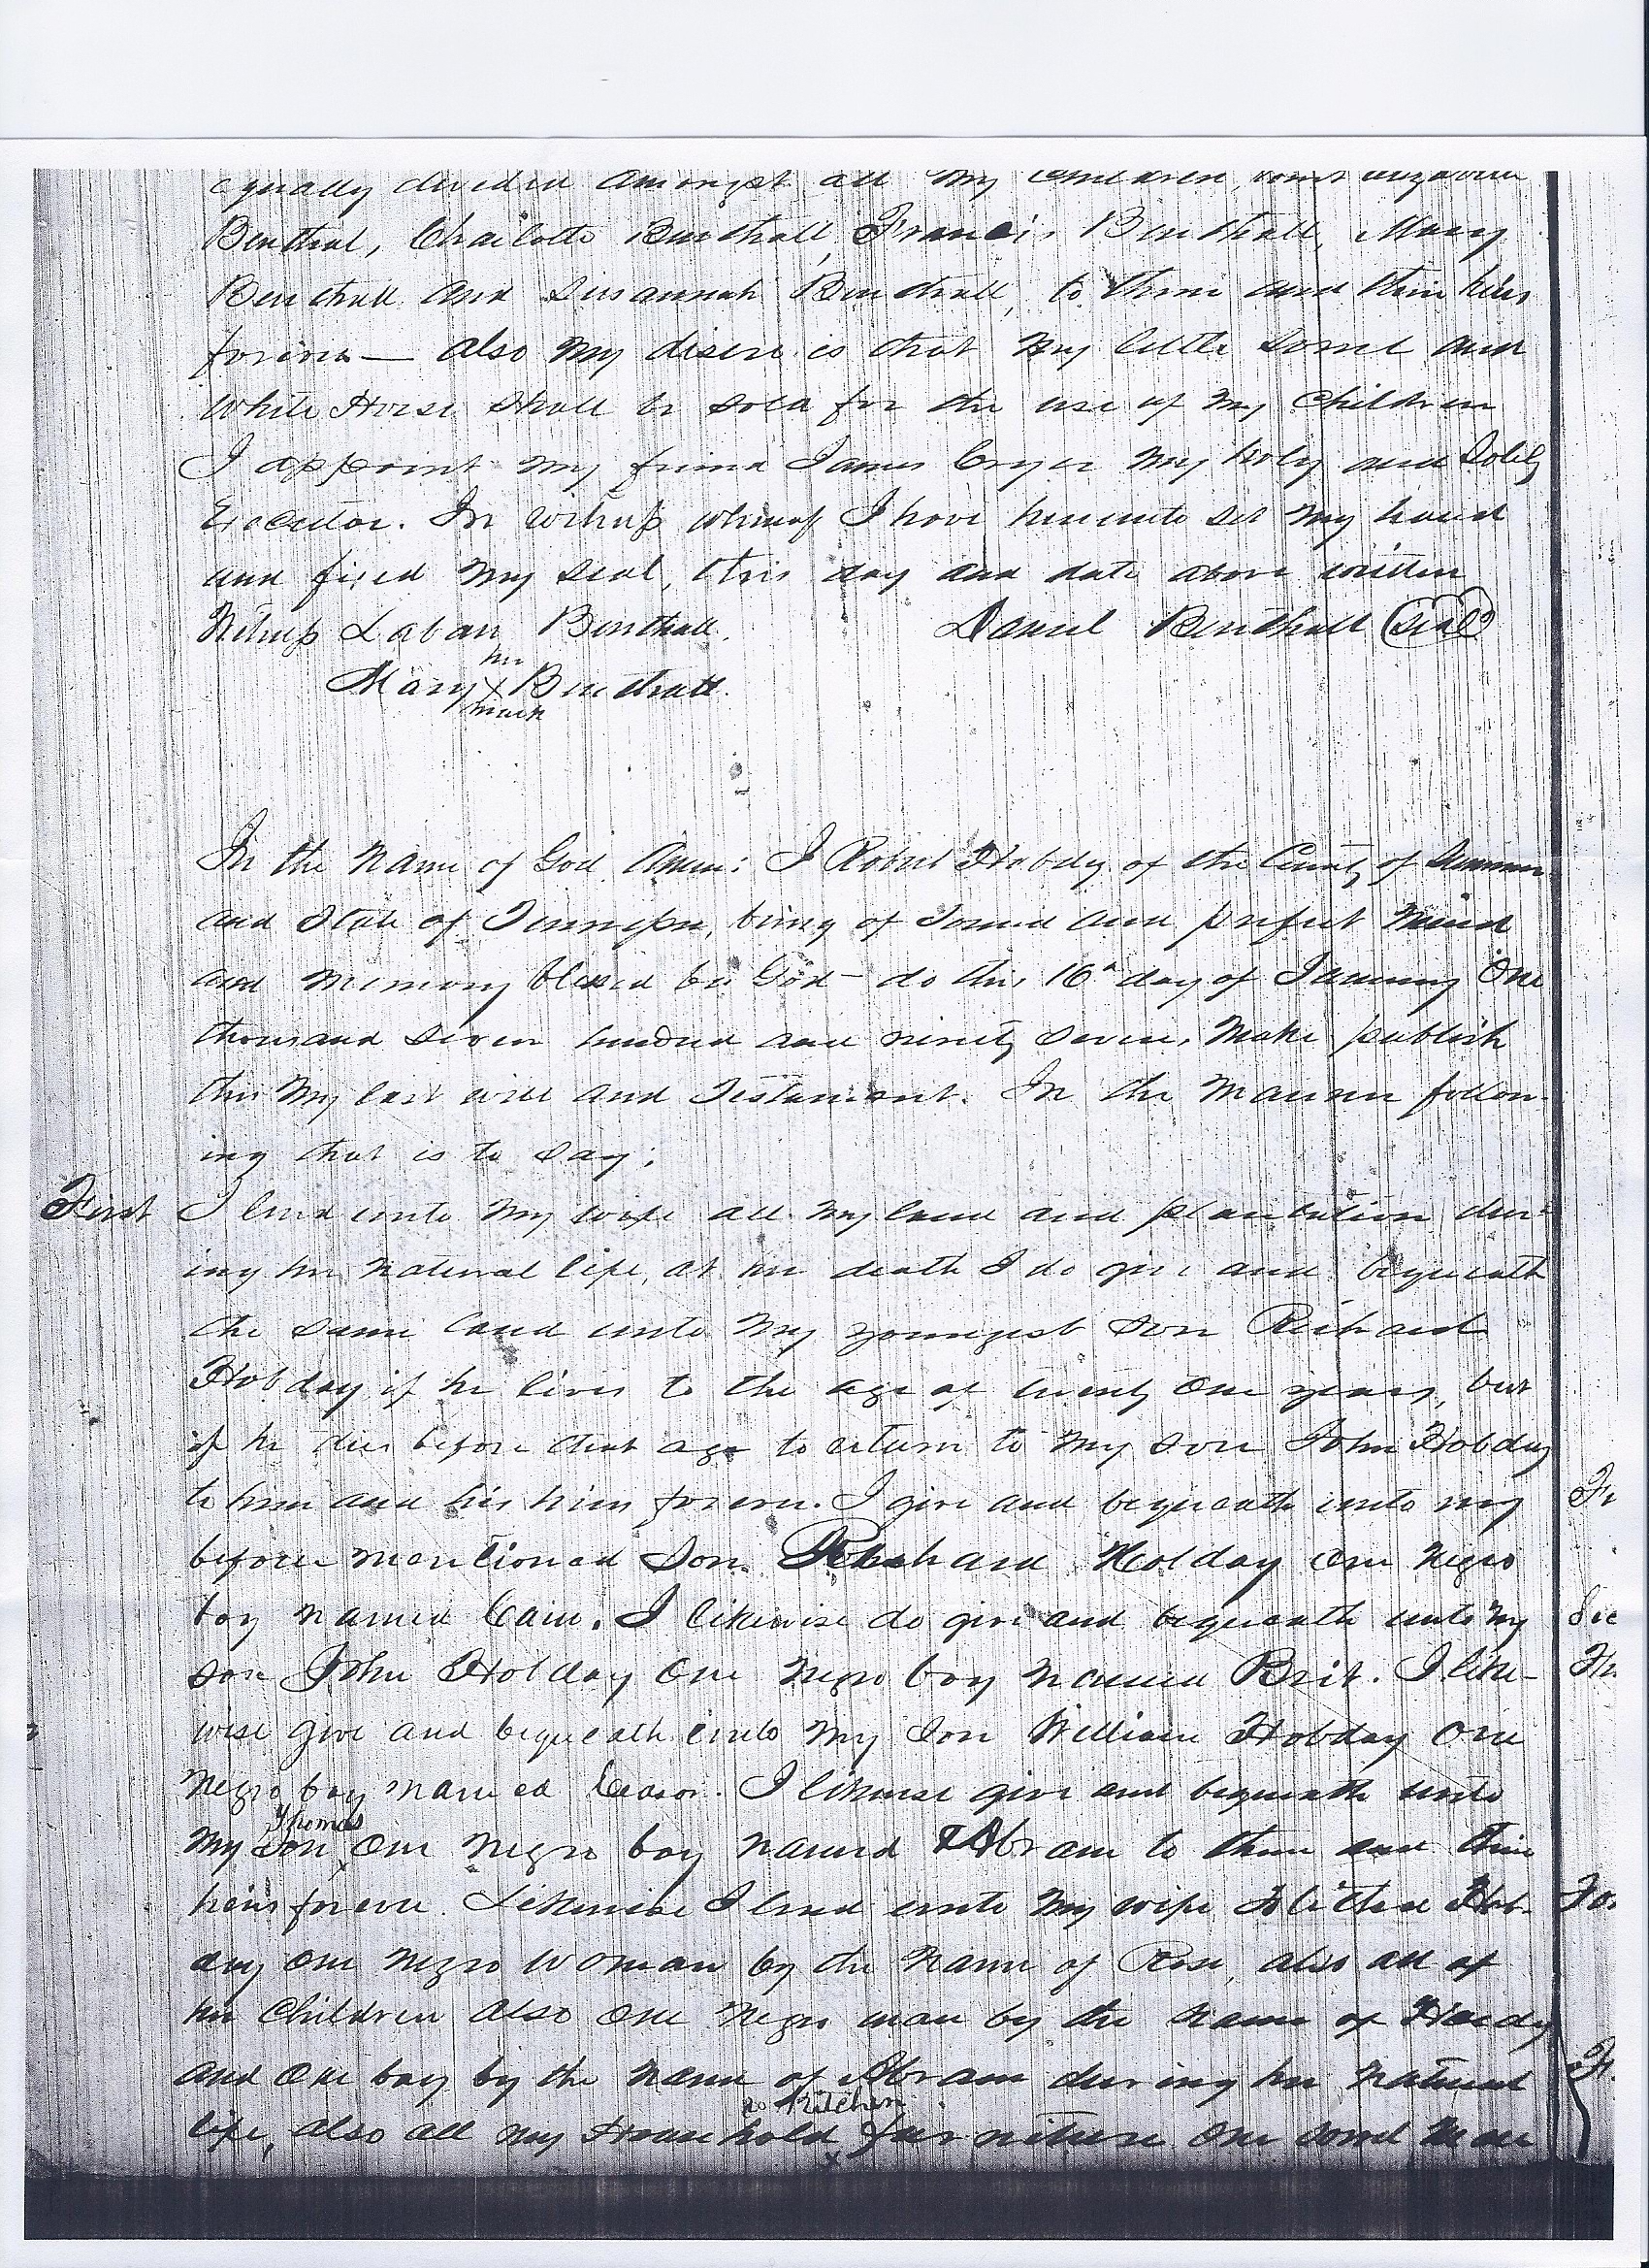 equally divided amongst all my children
Benthal, Charlotte Benthall, Francis Benthall, Mary
Benthall and Susannah Benthall, to them and their heirs
forever — also my desire is that my little sorrel and
White Horse shall be sold for the use of my Children
I appoint my friend James Cryer my holy and Solely
Executor. In witness whereof I have hereunto set my hand
and fixed my seal, this day and date above written
Witness Laban Benthall. Daniel Benthall (seal)
her
Mary X Benthall.
mark
In the name of God Amen: I Robert Hobdy of the County of Sumner
and State of Tennessee, being of sound and perfect mind
and memory blessed be God — do this 16th day of January One
thousand seven hundred and ninety seven, make publish
this my last will and Testament. In the manner follow-
ing that is to say:
First I lend unto my wife all my land and plantation dur-
ing her natural life, at her death I do give and bequeath
the same land unto my youngest son Richard
Hobday if he lives to the age of twenty one years, but
if he dies before that age to return to my son John Hobday
to him and his heirs forever. I give and bequeath unto my
before mentioned Son Richard Holday one negro
boy named Cain. I likewise do give and bequeath unto my
son John Holday one negro boy named Brit. I like-
wise give and bequeath unto my Son William Hobday one
negro boy named Ceasor. I likewise give and bequeath unto
Thomas
my son one negro boy named Abram to them and their
heirs forever. Likewise I lend unto my wife Hob-
day one negro woman by the name of Rose, also all of
her Children also one negro man by the name of Hardy
and one boy by the name of Abram during her natural
Kitchen
life, also all my Household furniture one sorrel Mare